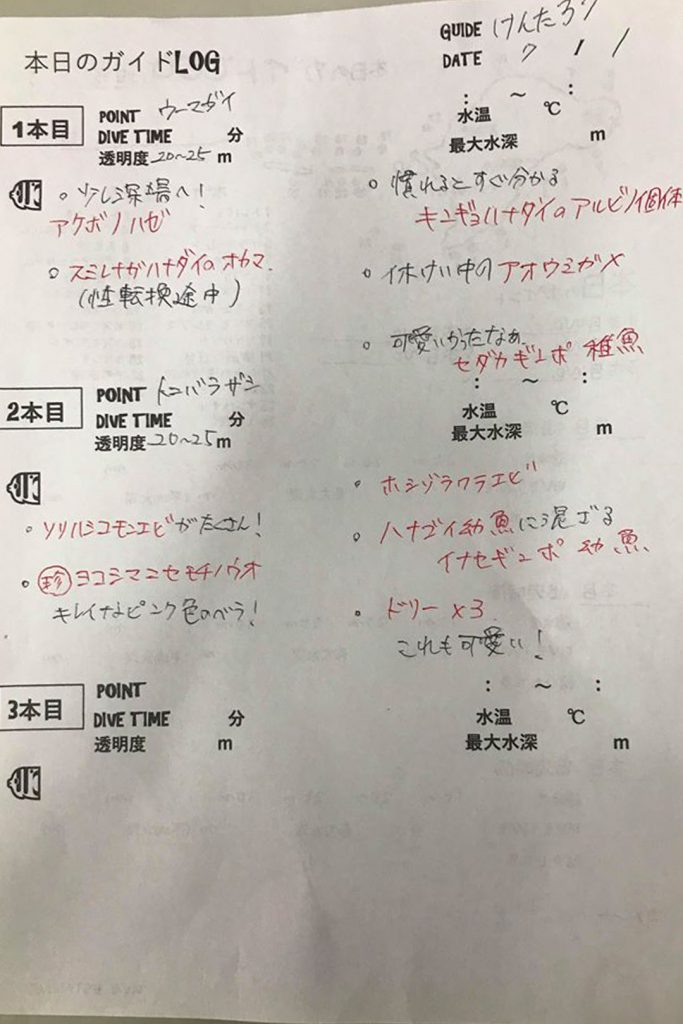 本日のガイドLOG
GUIDE けんたろう
DATE 7 / 1 /
1本目
POINT ウーマガイ
DIVE TIME 分
透明度 20~25 m
: ~ :
水温 ℃
最大水深 m
○ 少し深場へ!
アケボノハゼ
○ スミレナガハナダイのオカマ.
(性転換途中)
○ 慣れるとすぐ分かる
キンギョハナダイのアルビノ個体
○ イ木けい中のアオウミガメ
○ 可愛いかったなぁ.
セダカギンポ 稚魚
2本目
POINT トンバラザシ
DIVE TIME 分
透明度 20~25 m
: ~ :
水温 ℃
最大水深 m
○ ソリハシコモンエビがたくさん!
○ 珍 ヨコシマニセモチノウオ
キレイなピンク色のベラ!
○ ホシゾラワラエビ
○ ハナゴイ幼魚に混ざる
イナセギンポ 幼魚
○ ドリー x3.
これも可愛い!
3本目
POINT
DIVE TIME 分
透明度 m
: ~ :
水温 ℃
最大水深 m